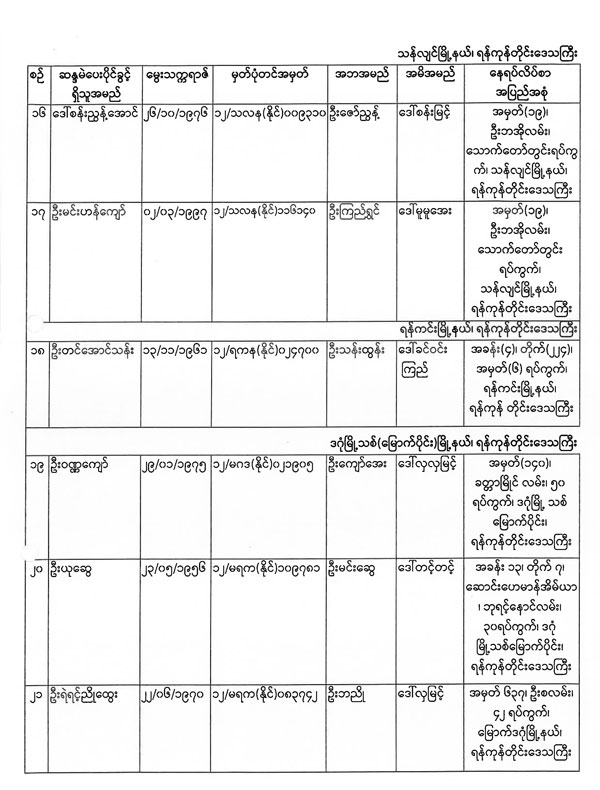 သန်လျင်မြို့နယ်၊ ရန်ကုန်တိုင်းဒေသကြီး
စဉ် ဆန္ဒမဲပေးပိုင်ခွင့် မွေးသက္ကရာဇ် မှတ်ပုံတင်အမှတ် အဘအမည် အမိအမည် နေရပ်လိပ်စာ
ရှိသူအမည် အပြည်အစုံ
၁၆ ဒေါ်စန်းညွန့်အောင် ၂၆/၁၀/၁၉၇၆ ၁၂/သလန(နိုင်)၀၀၉၃၁၀ ဦးဇော်ညွန့် ဒေါ်စန်းမြင့် အမှတ်(၁၉)၊
ဦးဘအိုလမ်း၊
သောက်တော်တွင်းရပ်ကွ
က်၊ သန်လျင်မြို့နယ်၊
ရန်ကုန်တိုင်းဒေသကြီး
၁၇ ဦးမင်းဟန်ကျော် ၀၂/၀၃/၁၉၉၇ ၁၂/သလန(နိုင်)၁၁၆၁၄၀ ဦးကြည်ရွှင် ဒေါ်မူမူအေး အမှတ်(၁၉)၊
ဦးဘအိုလမ်း၊
သောက်တော်တွင်း
ရပ်ကွက်၊
သန်လျင်မြို့နယ်၊
ရန်ကုန်တိုင်းဒေသကြီး
ရန်ကင်းမြို့နယ်၊ ရန်ကုန်တိုင်းဒေသကြီး
၁၈ ဦးတင်အောင်သန်း ၁၃/၁၁/၁၉၆၁ ၁၂/ရကန(နိုင်)၀၂၄၇၀၀ ဦးသန်းထွန်း ဒေါ်ခင်ဝင်း အခန်း(၄)၊ တိုက်(၂၂၄)၊
ကြည် အမှတ်(၆) ရပ်ကွက်၊
ရန်ကင်းမြို့နယ်၊
ရန်ကုန် တိုင်းဒေသကြီး
ဒဂုံမြို့သစ်(မြောက်ပိုင်း)မြို့နယ်၊ ရန်ကုန်တိုင်းဒေသကြီး
၁၉ ဦးဝဏ္ဏကျော် ၂၉/၀၁/၁၉၇၅ ၁၂/မဂဒ(နိုင်)၀၂၁၉၀၅ ဦးကျော်အေး ဒေါ်လှလှမြင့် အမှတ်(၁၄၀)၊
ခတ္တာမြိုင် လမ်း၊ ၅၀
ရပ်ကွက်၊ ဒဂုံမြို့ သစ်
မြောက်ပိုင်း၊
ရန်ကုန်တိုင်းဒေသကြီး
၂၀ ဦးယုဆွေ ၂၃/၀၅/၁၉၅၆ ၁၂/မရက(နိုင်)၁၀၉၇၈၁ ဦးမင်းဆွေ ဒေါ်တင့်တင့် အခန်း ၁၃၊ တိုက် ၇၊
ဆောင်းဟေမာန်အိမ်ယာ
၊ ဘုရင့်နောင်လမ်း၊
၃၀ရပ်ကွက်၊ ဒဂုံ
မြို့သစ်မြောက်ပိုင်း၊
ရန်ကုန်တိုင်းဒေသကြီး
၂၁ ဦးရဲရင့်ညိုထွေး ၂၂/၀၆/၁၉၇၀ ၁၂/မရက(နိုင်)၀၈၃၇၄၂ ဦးဘညို ဒေါ်လှမြင့် အမှတ် ၆၃၇၊ ဦးစလမ်း၊
၄၂ ရပ်ကွက်၊
မြောက်ဒဂုံမြို့နယ်၊
ရန်ကုန်တိုင်းဒေသကြီး